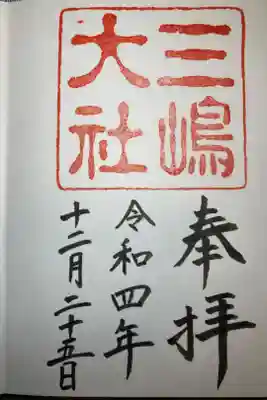 三嶋
大社
奉拝
令和四年
十二月二十五日